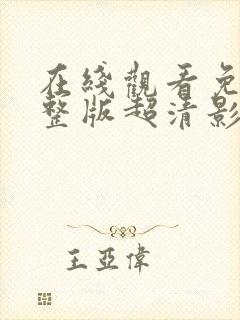 在綫觀看免
整版超清影
王亞偉